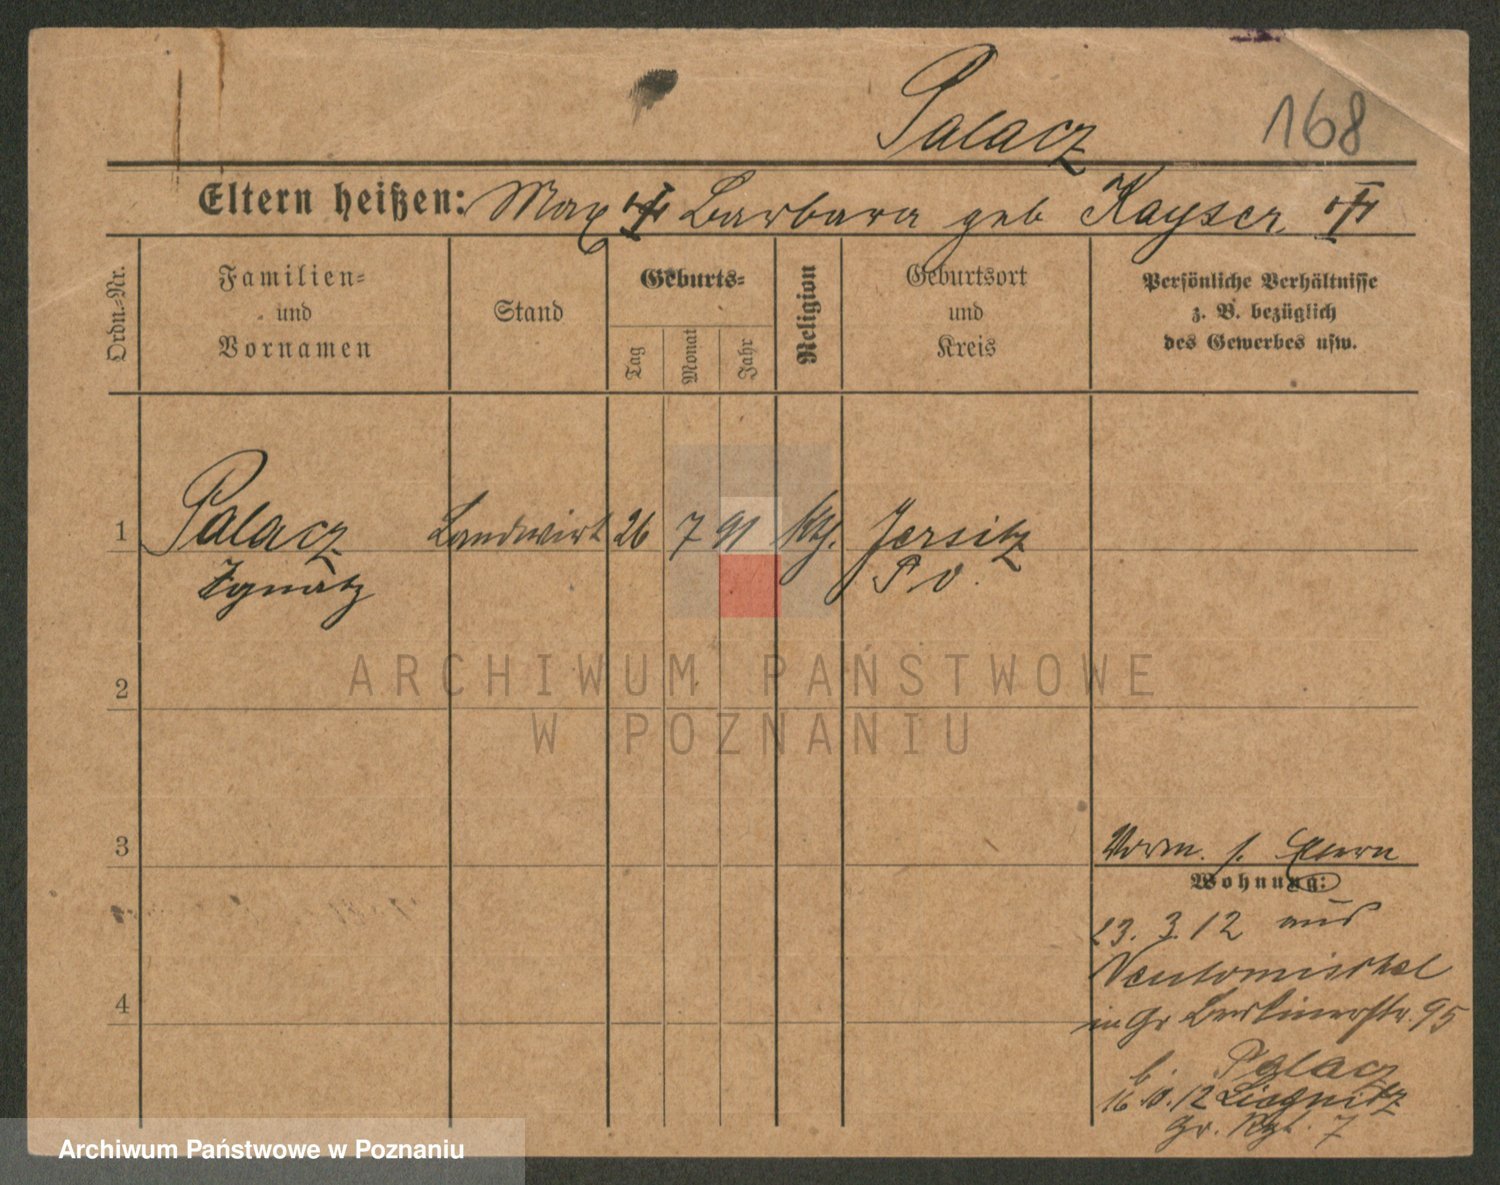 Palacz 168
Eltern heißen: Max Barbara geb Kayser
Ordn.-Nr.
Familien-
und
Vornamen
Stand
Geburts-
Tag
Monat
Jahr
Religion
Geburtsort
und
Kreis
Persönliche Verhältnisse
z. B. bezüglich
des Gewerbes usw.
1 Palacz Landwirt 26 7 91 kth. Jersitz
Ignatz P O
2
ARCHIWUM PAŃSTWOWE
W POZNANIU
3
Vorm. s. Eltern
Wohnung:
23. 3. 12 aus
Neutomischel
in Gr Berlinerstr. 95
b. Palacz
16 10. 12 Liegnitz
Gr. Rgt. 7
4
Archiwum Państwowe w Poznaniu